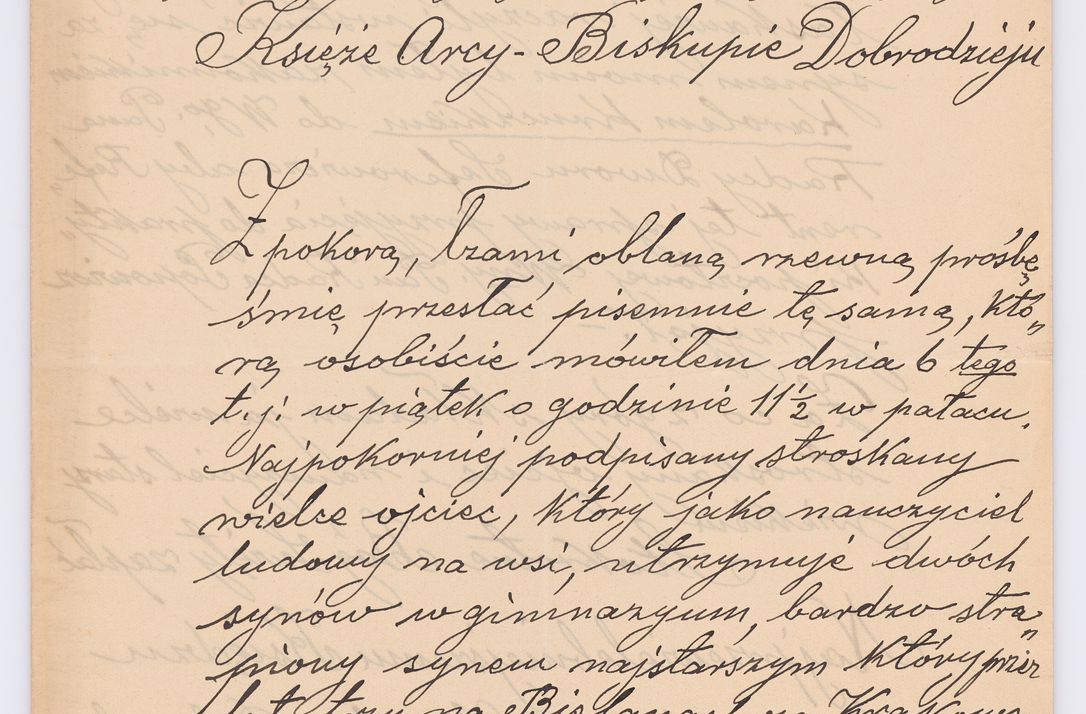 Księże Arcy-Biskupie Dobrodzieju
Z pokorą, łzami oblaną rzewną prośbę
śmię przesłać pisemnie tę samą, któ„
rą osobiście mówiłem dnia 6 tego
t. j. w piątek o godzinie 11½ w pałacu.
Najpokorniej podpisany stroskany
wielce ojciec, który jako nauczyciel
ludowy na wsi, utrzymuje dwóch
synów w gimnazyum, bardzo stra„
piony synem najstarszym który przez
lat trzy na Bielanach